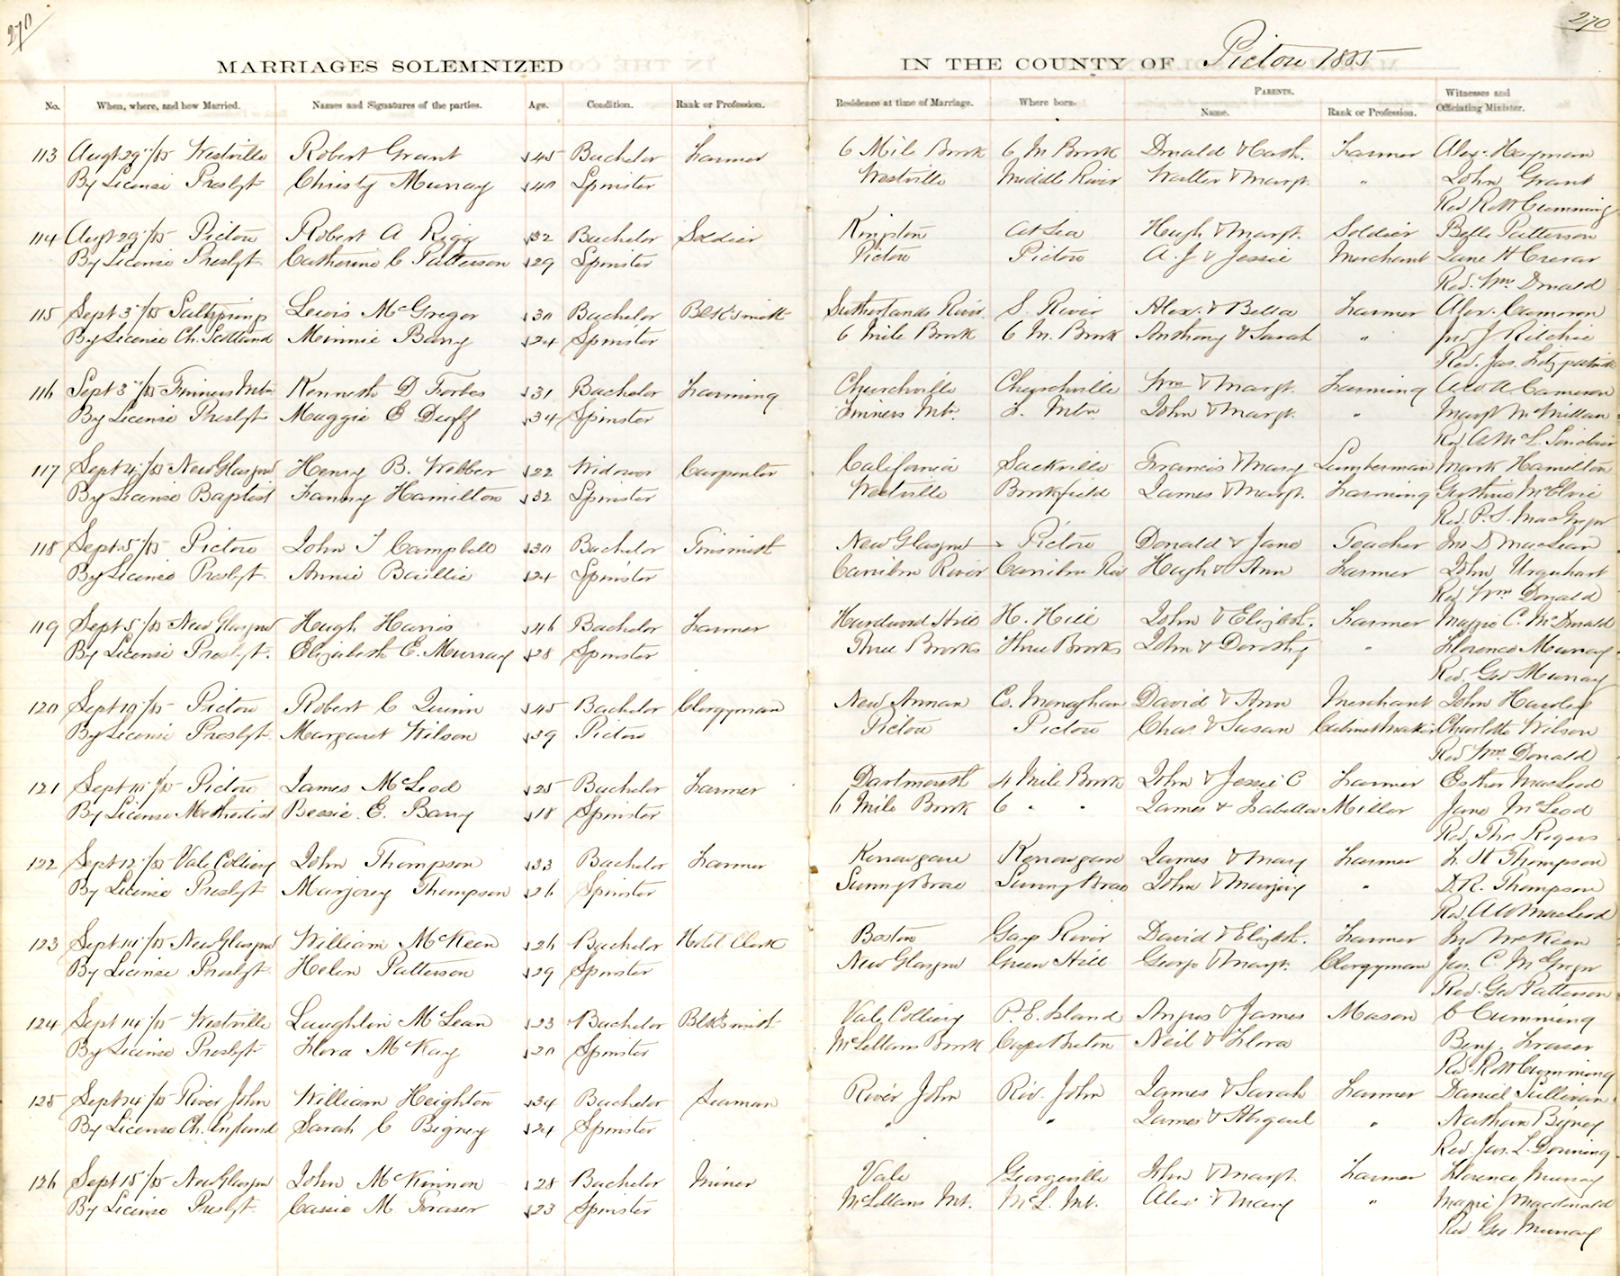 270
270
MARRIAGES SOLEMNIZED IN THE COUNTY OF Pictou 1885
No. When, where, and how Married. Names and Signatures of the parties. Age. Condition. Rank or Profession. Residence at time of Marriage. Where born. PARENTS. Name. Rank or Profession. Witnesses and Officiating Minister.
113 Augt 29/85 Westville Robert Grant 45 Bachelor Farmer 6 Mile Brook 6 M Brook Donald & Cath. Farmer Alex. Hayman
By License Presbyt. Christy Murray 40 Spinster Westville Middle River Walter & Margt. " John Grant
Rev R W Cumming
114 Augt 29/85 Pictou Robert A Rigg 32 Bachelor Soldier Kingston At Sea Hugh & Margt. Soldier Belle Patterson
By License Presbyt. Catherine C Patterson 29 Spinster Pictou Pictou A. J & Jessie Merchant Jane H Crerar
Rev. Wm Donald
115 Sept 3/85 Saltsprings Lewis McGregor 30 Bachelor Blksmith Sutherlands River S. River Alex. & Bella Farmer Alex. Cameron
By License Ch. Scotland Minnie Barry 24 Spinster 6 Mile Brook 6 M. Brook Anthony & Sarah " Jno J Ritchie
Rev. Jas. Fitzpatrick
116 Sept 3/85 Frasers Mtn Kenneth D Forbes 31 Bachelor Farming Churchville Churchville Wm & Margt. Farming Cameron
By License Presbyt. Maggie E Duff 34 Spinster Frasers Mt. F. Mtn John & Margt. " Margt McMillan
Rev A McL. Sinclair
117 Sept 4/85 New Glasgow Henry B. Webber 22 Widower Carpenter California Sackville Francis & Mary Lumberman Mark Hamilton
By License Baptist Fanny Hamilton 32 Spinster Westville Brookfield James & Margt. Farming McElvie
Rev. P. S. MacGregor
118 Sept 5/85 Pictou John T Campbell 30 Bachelor Tinsmith New Glasgow Pictou Donald & Jane Teacher Jno D MacLean
By License Presbyt. Annie Baillie 24 Spinster Carribou River Carribou Riv Hugh & Ann Farmer John Urquhart
Rev. Wm Donald
119 Sept 5/85 New Glasgow Hugh Harris 46 Bachelor Farmer Hardwood Hill H. Hill John & Elizbth. Farmer Maggie C. McDonald
By License Presbyt. Elizabeth E. Murray 28 Spinster Three Brooks Three Brooks John & Dorothy " Florence Murray
Rev. Geo Murray
120 Sept 19/85 Pictou Robert C Quinn 45 Bachelor Clergyman New Annan Co. Monaghan David & Ann Merchant John
By License Presbyt. Margaret Wilson 39 Pictou Pictou Pictou Chas & Susan Cabinet Maker Charlotte Wilson
Rev Wm Donald
121 Sept 10/85 Pictou James McLeod 25 Bachelor Farmer Dartmouth 4 Mile Brook John & Jessie C Farmer Esther MacLeod
By License Methodist Bessie. E. Barry 18 Spinster 6 Mile Brook 6 " " James & Isabella Miller Jane McLeod
Rev. Thos Rogers
122 Sept 12/85 Vale Colliery John Thompson 33 Bachelor Farmer Kerrowgare Kerrowgare James & Mary Farmer Thompson
By License Presbyt. Marjorey Thompson 26 Spinster Sunny Brae Sunny Brae John & Marjory " D. R. Thompson
Rev. MacLeod
123 Sept 14/85 New Glasgow William McKeen 26 Bachelor Hotel Clerk Boston Gays River David & Elizbth. Farmer Jno McKeen
By License Presbyt. Helen Patterson 29 Spinster New Glasgow Green Hill George & Margt. Clergyman Jas. C. McGregor
Rev. Geo Patterson
124 Sept 14/85 Westville Laughlin McLean 23 Bachelor Blksmith Vale Colliery P. E. Island Angus & James Mason C Cumming
By License Presbyt. Flora McKay 20 Spinster McLellans Brook Cape Breton Neil & Flora Benj. Fraser
Rev. R W Cumming
125 Sept 14/85 River John William Heighton 34 Bachelor Seaman River John Riv. John James & Sarah Farmer Daniel Sullivan
By License Ch. England Sarah C Bigney 24 Spinster " " James & Abigail " Nathan Bigney
Rev. Jas. L. Downing
126 Sept 15/85 New Glasgow John McKinnon 28 Bachelor Miner Vale Georgeville John & Margt. Farmer Florence Murray
By License Presbyt. Cassie M Fraser 23 Spinster McLellans Mt. McL. Mt. Alex & Mary " Maggie J Macdonald
Rev Geo Murray